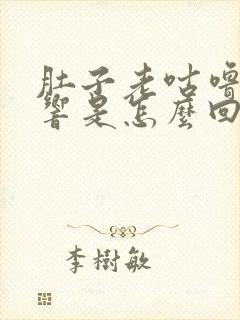 肚子老咕嚕
響是怎麼回
李樹敏